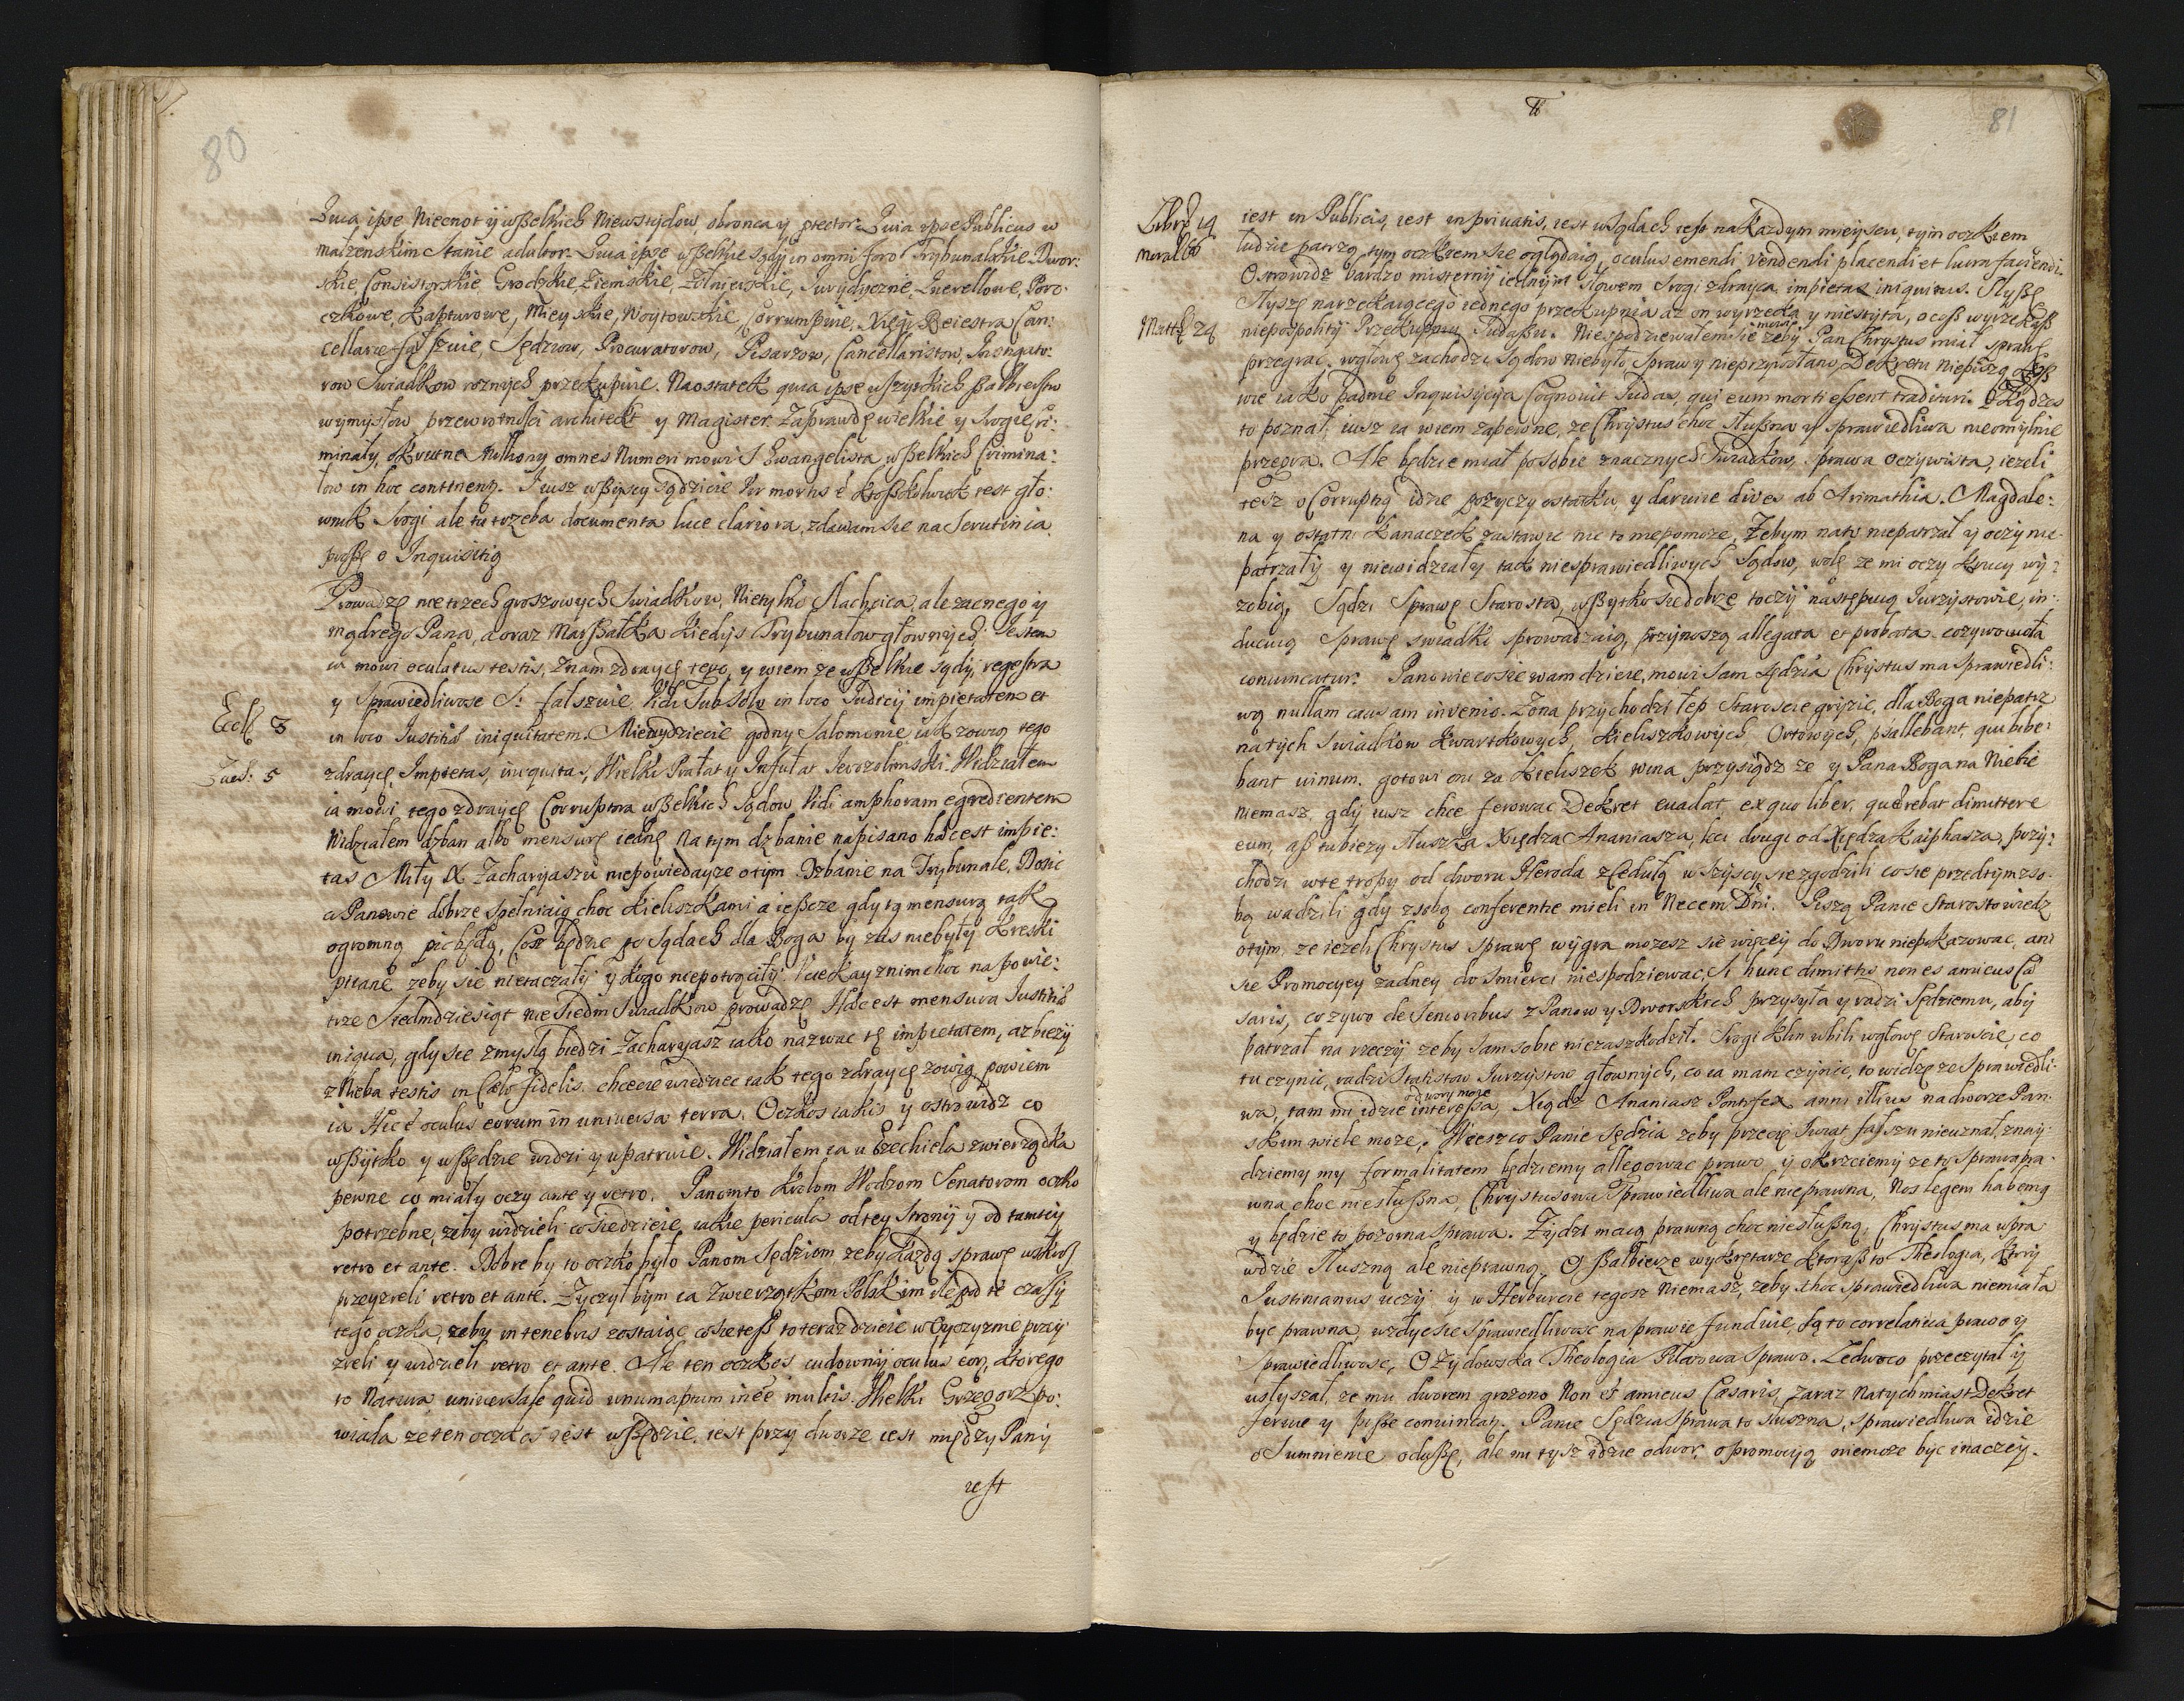 80
Quia ipse Niecnot ij wßelkich Niewstydow obronca y ptector. Quia ipse Publicus w
małzenskim Stanie adulter. Quia ipse wßelkie sądy in omni foro Trybunalskie, Dwor:
skie, Consistorskie, Grodzkie, Ziemskie, Zołnierskie, Jurydyczne, Querellowe, Poro:
czkowe, Kapturowe, Mieyskie, Woytowskie, Corrumpuie, Xięgi Reiestra Can:
cellarie fałszuie, Sędziow, Procuratorow, Pisarzow, Cancellaristow, Instigato:
row Swiadkow roznych przekupuie. Naostatek quia ipse wszytkich ßalbierstw
wymysłow przewrotnosci architekt y Magister. Zaprawdę wielkie y srogie cri:
minały, okrutne
omnes Numeri mowi S Ewangelista wßelkich Crimina:
łow in hoc continent. Juz wßyscy sądzicie Vir mortis é ktoßkolwiek iest gło:
wnik srogi ale tu trzeba documenta luce clariora, zdawam sie na Scrutinia
poßę o Inquisitią
Prowadzę nie trzech groszowych Swiadkow, Nietylko slachcica, ale zacnego y
mądrego Pana, a oraz Marßałka kiedys Trybunałow głownych. Jestem
ia mowi oculatus testis, znam zdraycę tego, y wiem ze wßelkie sądy, regestra
y sprawiedliwosc S: fałszuie, Vidi sub Sole in loco Judicij impietatem et
Eccl 3
in loco Justitiæ iniquitatem. Nie wydziecie godny Salomonie iak zowią tego
Zach: 5
zdraycę Impietas, iniquitas, Wielki Prałat y Infułat Jerozolimski. Widziałem
ia mowi tego zdraycę Corruptora wßelkich sądow Vidi amphoram egredientem
Widziałem dzban albo mensurę iedną Na tym dzbanie napisano hæc est impie:
tas Miły X Zacharyaszu niepowiedayze o tym Dzbanie na Trybunale, Dosic
ci Panowie dobrze spełniaią choc kieliszkami a ießcze gdy tą mensurą tak
ogromną pic będą, Cosz będzie po sądach dla Boga by zas niebyły kreski
piiane zeby sie nietaczały y kogo niepotrąciły. Uciekay z nim choc na powie:
trze Siedmdziesiąt nie siedm Swiadkow prowadzę Hæc est mensura Justitiæ
iniqua, gdy sie zmyslą biedzi Zacharyasz iako nazwac tę impietatem, az biezy
z Nieba testis in Cælo fidelis. chcecie wiedziec iak tego zdraycę zowią powiem
ia Hic é oculus eorum in universa terra. Oczkos iakis y ostrowidz co
wßytko y wßędzie widzi y upatruie. Widziałem ia u Ezechiela zwierzątka
pewne co miały oczy ante y retro. Panom to Krolom Wodzom Senatorom oczko
potrzebne, zeby widzieli co sie dzieie, iakie pericula od tey strony y od tamtey
retro et ante. Dobre by to oczko było Panom Sędziom zeby kazdą sprawę wskroß
przeyzreli retro et ante. Zyczył bym ia Zwierzątkom Polskim ile pod te czaßy
tego oczka, zeby in tenebris zostaiąc, co sie teß to teraz dzieie w Oyczyznie przey:
zreli y widzieli retro et ante. Ale ten oczkos cudowny oculus eor, ktorego
to Natura universale quid unum aptum inēe multis. Wielki Grzegorz po:
wiada ze ten oczkos iest wßędzie, iest przy dworze iest między Pany
iest
81
Libro 14
Moral
iest in Publicis, iest in privatis, iest w sądach iest na kazdym mieyscu, tym oczkiem
ludzie patrzą, tym oczkiem sie oglądaią, oculus emendi vendendi placendi et lucra faciendi.
Ostrowidz bardzo misterny iednym słowem srogi zdrayca impietas iniquitas. Słyßę
Słyszę narzekaiącego iednego przekupnia az on wyrzeka y niestyta, o coß wyrzekaß
Matth 24
niepospolity Przekupniu Judaßu. Niespodziewałem sie mowi zeby Pan Chrystus miał sprawę
przegrac, w głowę zachodzi sądow niebyło, sprawy nieprzywołano, Dekretu niepiszą
wie iako padnie Inquisycya Cognovit Judas, qui eum morti essent tradituri. Zkądzes
to poznał, iusz ia wiem zapewne, ze Chrystus choc słußna y sprawiedliwa nieomylnie
przegra. Ale będzie miał po sobie znacznych Swiadkow, sprawa oczywista, iezeli
tesz o Corruptią idzie pozyczy ostatku, y daruie dives ab Arimathia. Magdale:
na y ostatni kanaczek zastawi nic to niepomoze, Zebym na to niepatrzał y oczy nie
patrzały y niewidziały tak niesprawiedliwych sądow, wolę ze mi oczy krucy wy:
zobią, Sądzi Sprawę Starosta, wßytko sie dobrze toczy następuią Jurzystowie, in:
ducuią Sprawę swiadki sprowadzaią, przynoszą allegata et probata co zywo woła
convincatur: Panowie co sie wam dzieie, mowi sam sędzia Chrystus ma sprawiedli:
wą nullam causam invenio. Zona przychodzi łep Staroscie gryzie, dla Boga niepatrz
na tych swiadkow kwartkowych, kieliszkowych Ortowych, psallebant, qui bibe:
bant vinum. gotowi oni za kieliszek wina przysiądz ze y Pana Boga na Niebie
niemasz, gdy iusz chce ferowac Dekret evadat, ex quo liber, quærebat dimittere
eum, aß tu biezy słuszka Xiędza Ananiasza, leci drugi od Xiędza Kaiphasza, przy:
chodzi w te tropy od dworu Heroda z Cedułą wszyscy sie zgodzili co sie przedtym z so:
bą wadzili gdy z sobą conferentie mieli in Necem Dñi. Piszą Panie Starosto wiedz
o tym, ze iezeli Chrystus sprawę wygra mozesz sie więcey do Dworu niepokazowac, ani
sie Promocyey zadney do smierci niespodziewac, Si hunc dimittis non es amicus Cæ
saris, co zywo de Senioribus z Panow y Dworskich przysyła y radzi Sędziemu, aby
patrzał na rzeczy zeby sam sobie niezaszkodził. Srogi klin wbili w głowę Staroscie, co
tu czynic, radzi Statistow Jurzystow głownych, co ia mam czynic, to widzę ze sprawiedli:
wa, tam mi idzie o interessa, Xiądz Ananiasz Pontifex anni illius na dworze Pan:
skim wiele moze, Wiesz co Panie Sędzia zeby przecię swiat fałszu nieuznał, znay:
dziemy my formalitatem będziemy allegowac prawo, y okrzciemy ze to sprawa pra:
wna choc niesłußna, Chrystusowa Sprawiedliwa ale nieprawna, Nos legem habemą
y będzie to pozorna sprawa. Zydzi maią prawną choc niesłußną, Chrystus ma wpra
wdzie słuszną ale nieprawną. O ßalbierze wykrętarze ktoraß to Theologia, ktory
Justinianus uczy y w Herburcie tegosz Niemasz, zeby choc sprawiedliwa niemiała
byc prawna, wzdyc sie sprawiedliwosc na prawie funduie, są to correlativa prawo y
sprawiedliwosc, O Zydowska Theologia Piłatowa Sprawo. Ledwo co przeczytał y
usłyszał, ze mu dworem grozono Non és amicus Cæsaris, zaraz Natychmiast Dekret
feruie y piße convincatr. Panie Sędzia Sprawa to słuszna, sprawiedliwa idzie
o Sumnienie o dußę, ale mi tysz idzie o dwor, o promocyą niemoze byc inaczey.